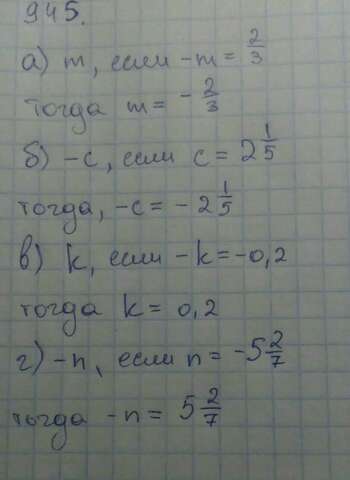 945.
а) m, если -m = 2/3
тогда m = - 2/3
б) -c, если c = 2 1/5
тогда, -c = - 2 1/5
в) k, если -k = -0,2
тогда k = 0,2
г) -n, если n = -5 2/7
тогда -n = 5 2/7